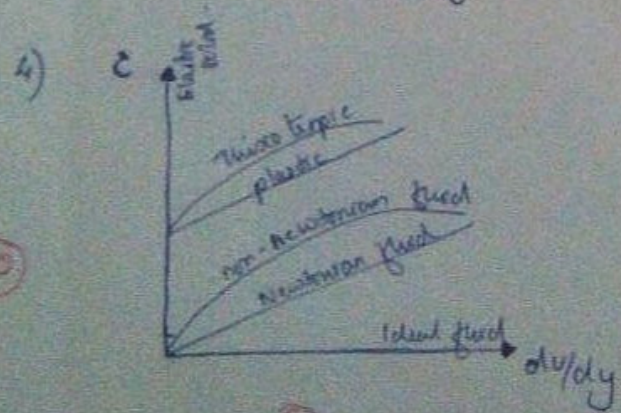 4)
τ
Elastic
Thixo tropic
plastic
non-newtonian fluid
Newtonian fluid
Ideal fluid
du/dy